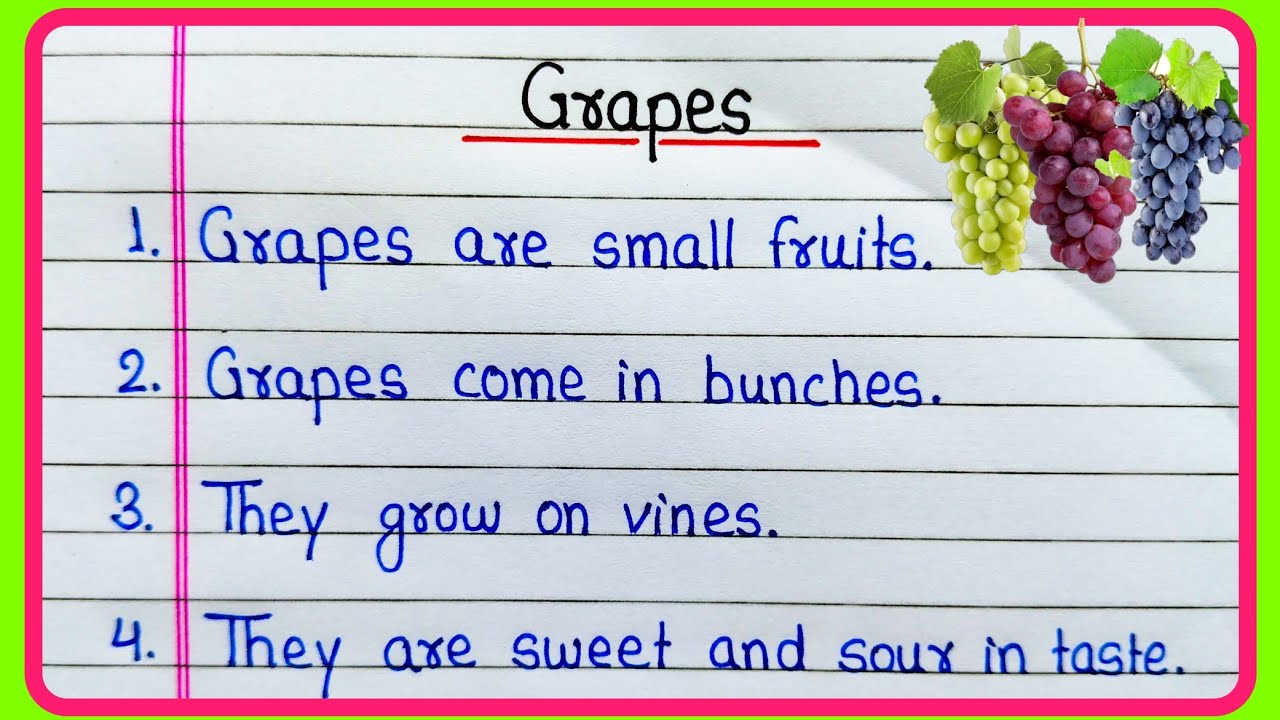 Grapes
1. Grapes are small fruits.
2. Grapes come in bunches.
3. They grow on vines.
4. They are sweet and sour in taste.